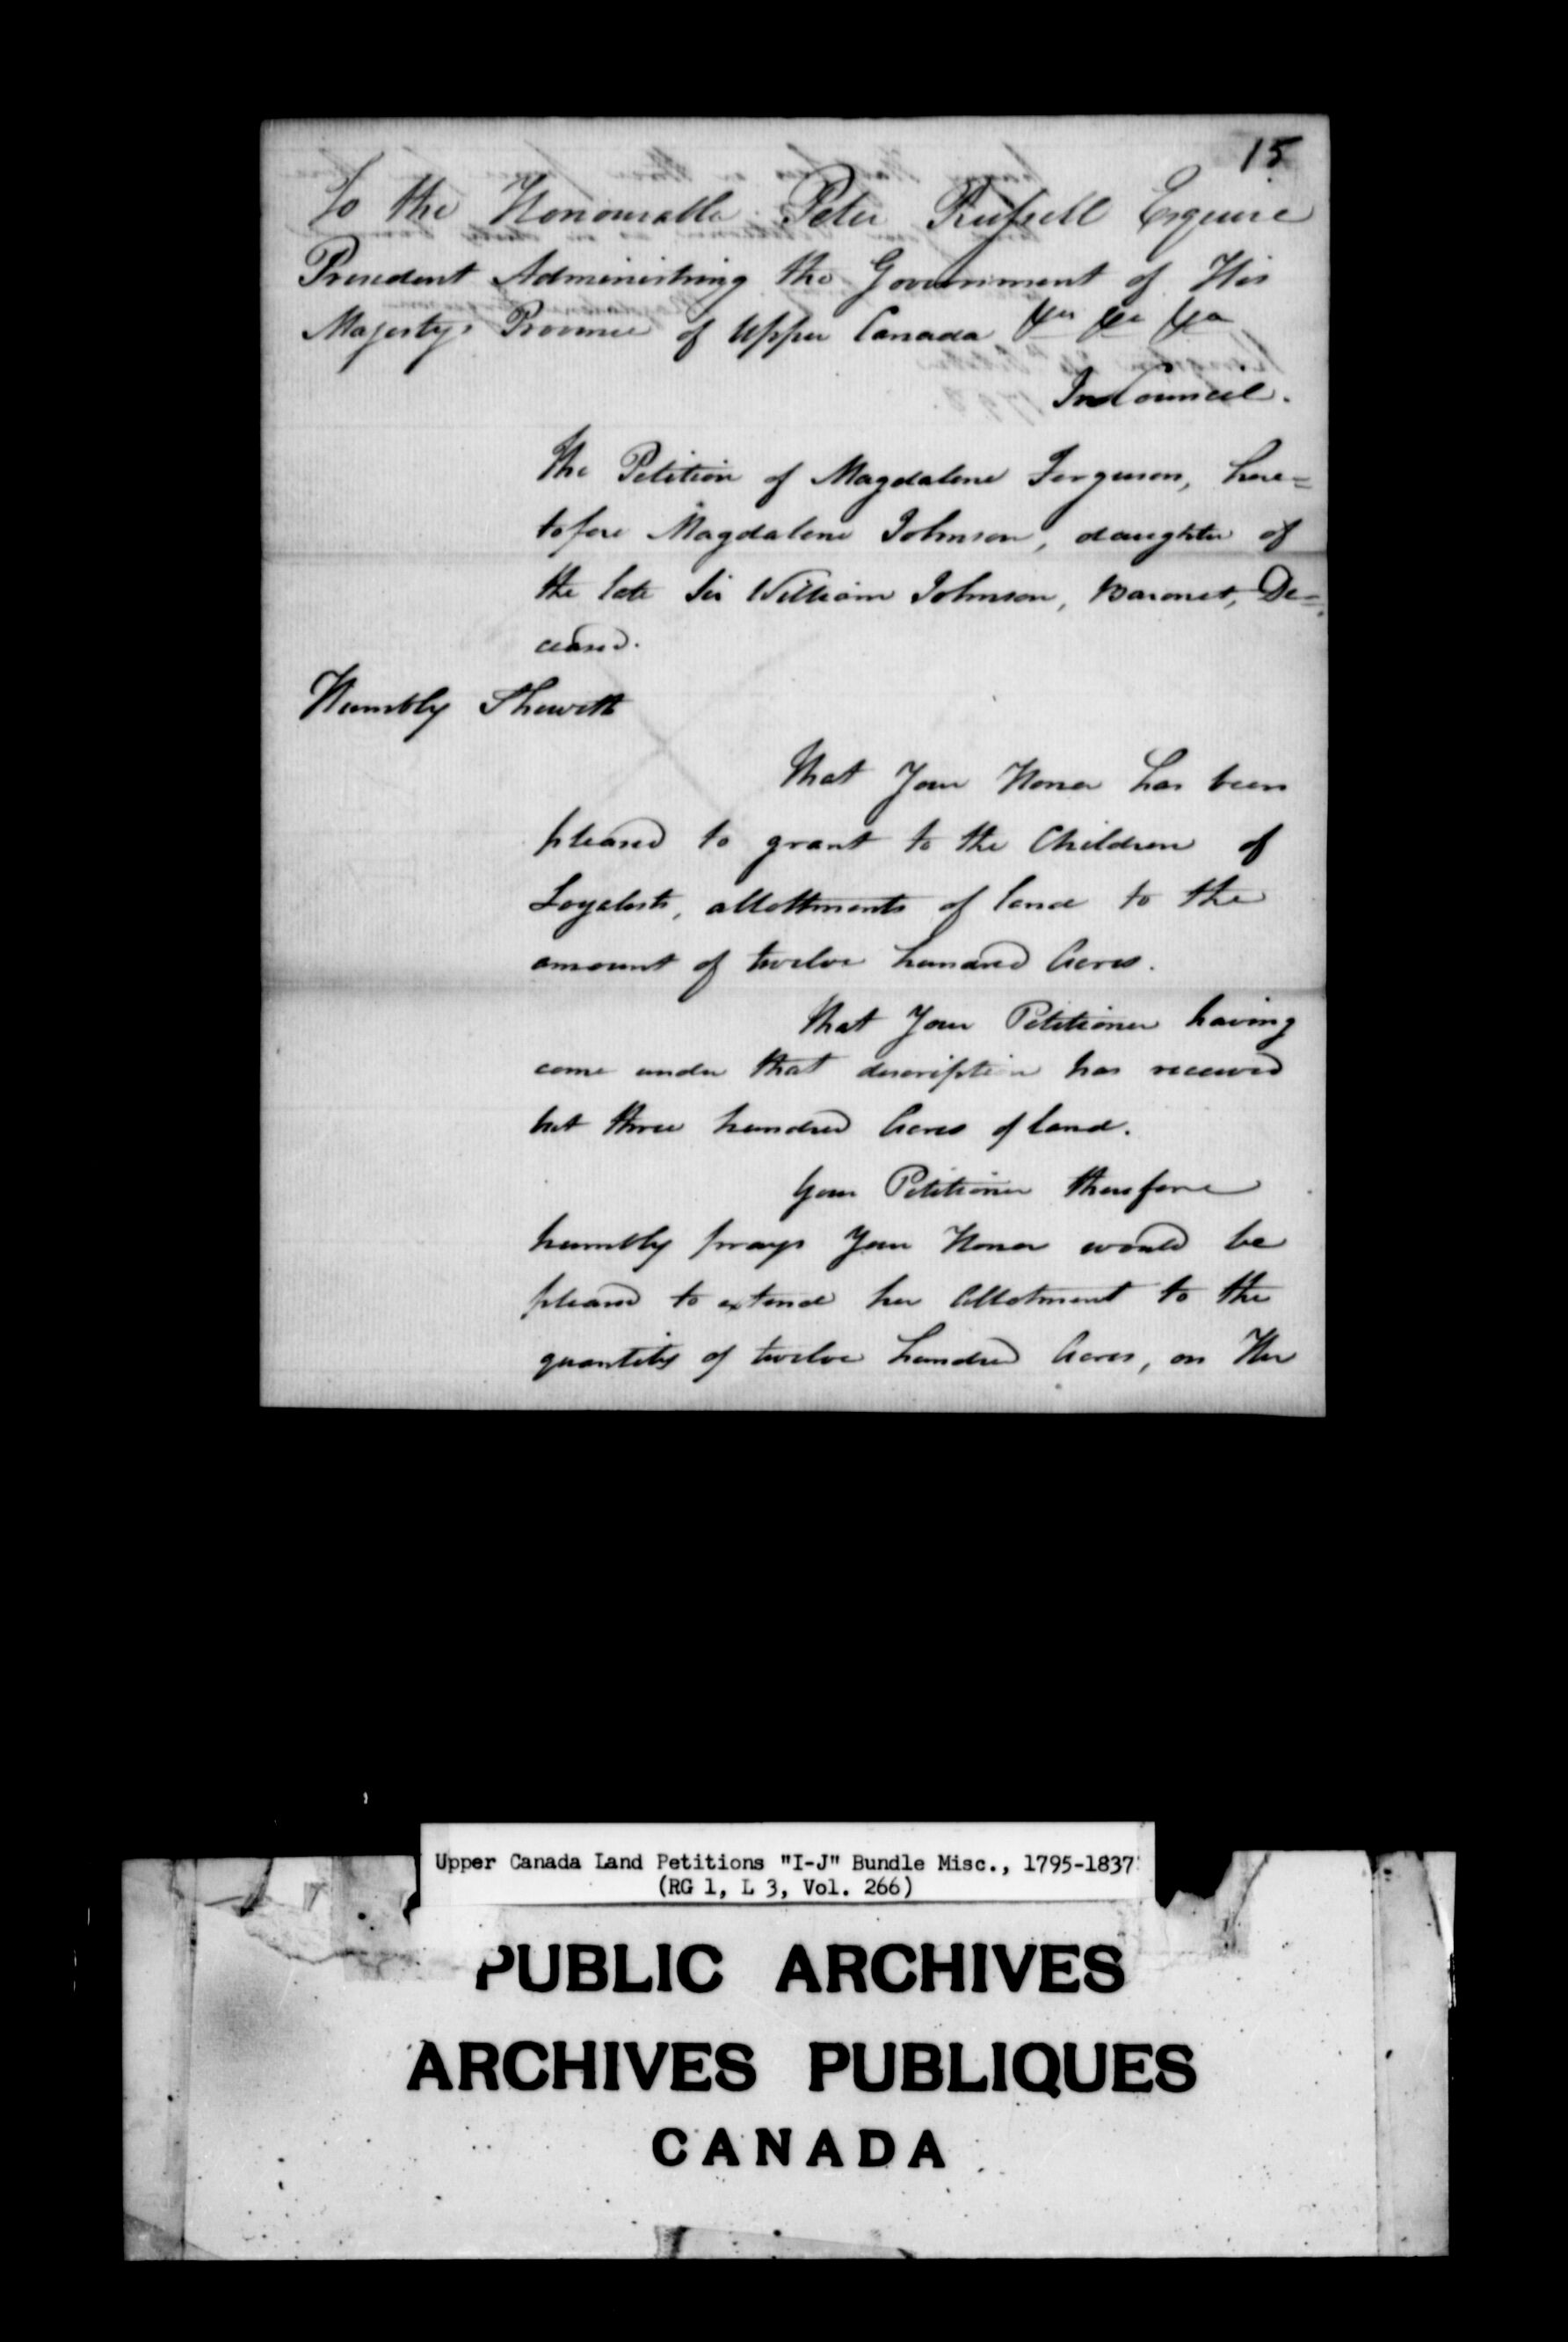 15
To the Honourable Peter Russell Esquire
President Administring the Government of His
Majestys Province of Upper Canada &ca &ca &ca
In Council.
The Petition of Magdalene Ferguson, here=
tofore Magdalene Johnson, daughter of
the late Sir William Johnson, Baronet, De=
ceased.
Humbly Sheweth
That Your Honor has been
pleased to grant to the Children of
Loyalists, allottments of land to the
amount of twelve hundred Acres.
That Your Petitioner having
come under that description has received
but three hundred Acres of land.
Your Petitioner therefore
humbly prays Your Honor would be
pleased to extend her Allotment to the
quantity of twelve hundred Acres, on Her
Upper Canada Land Petitions "I-J" Bundle Misc., 1795-1837
(RG 1, L 3, Vol. 266)
PUBLIC ARCHIVES
ARCHIVES PUBLIQUES
CANADA